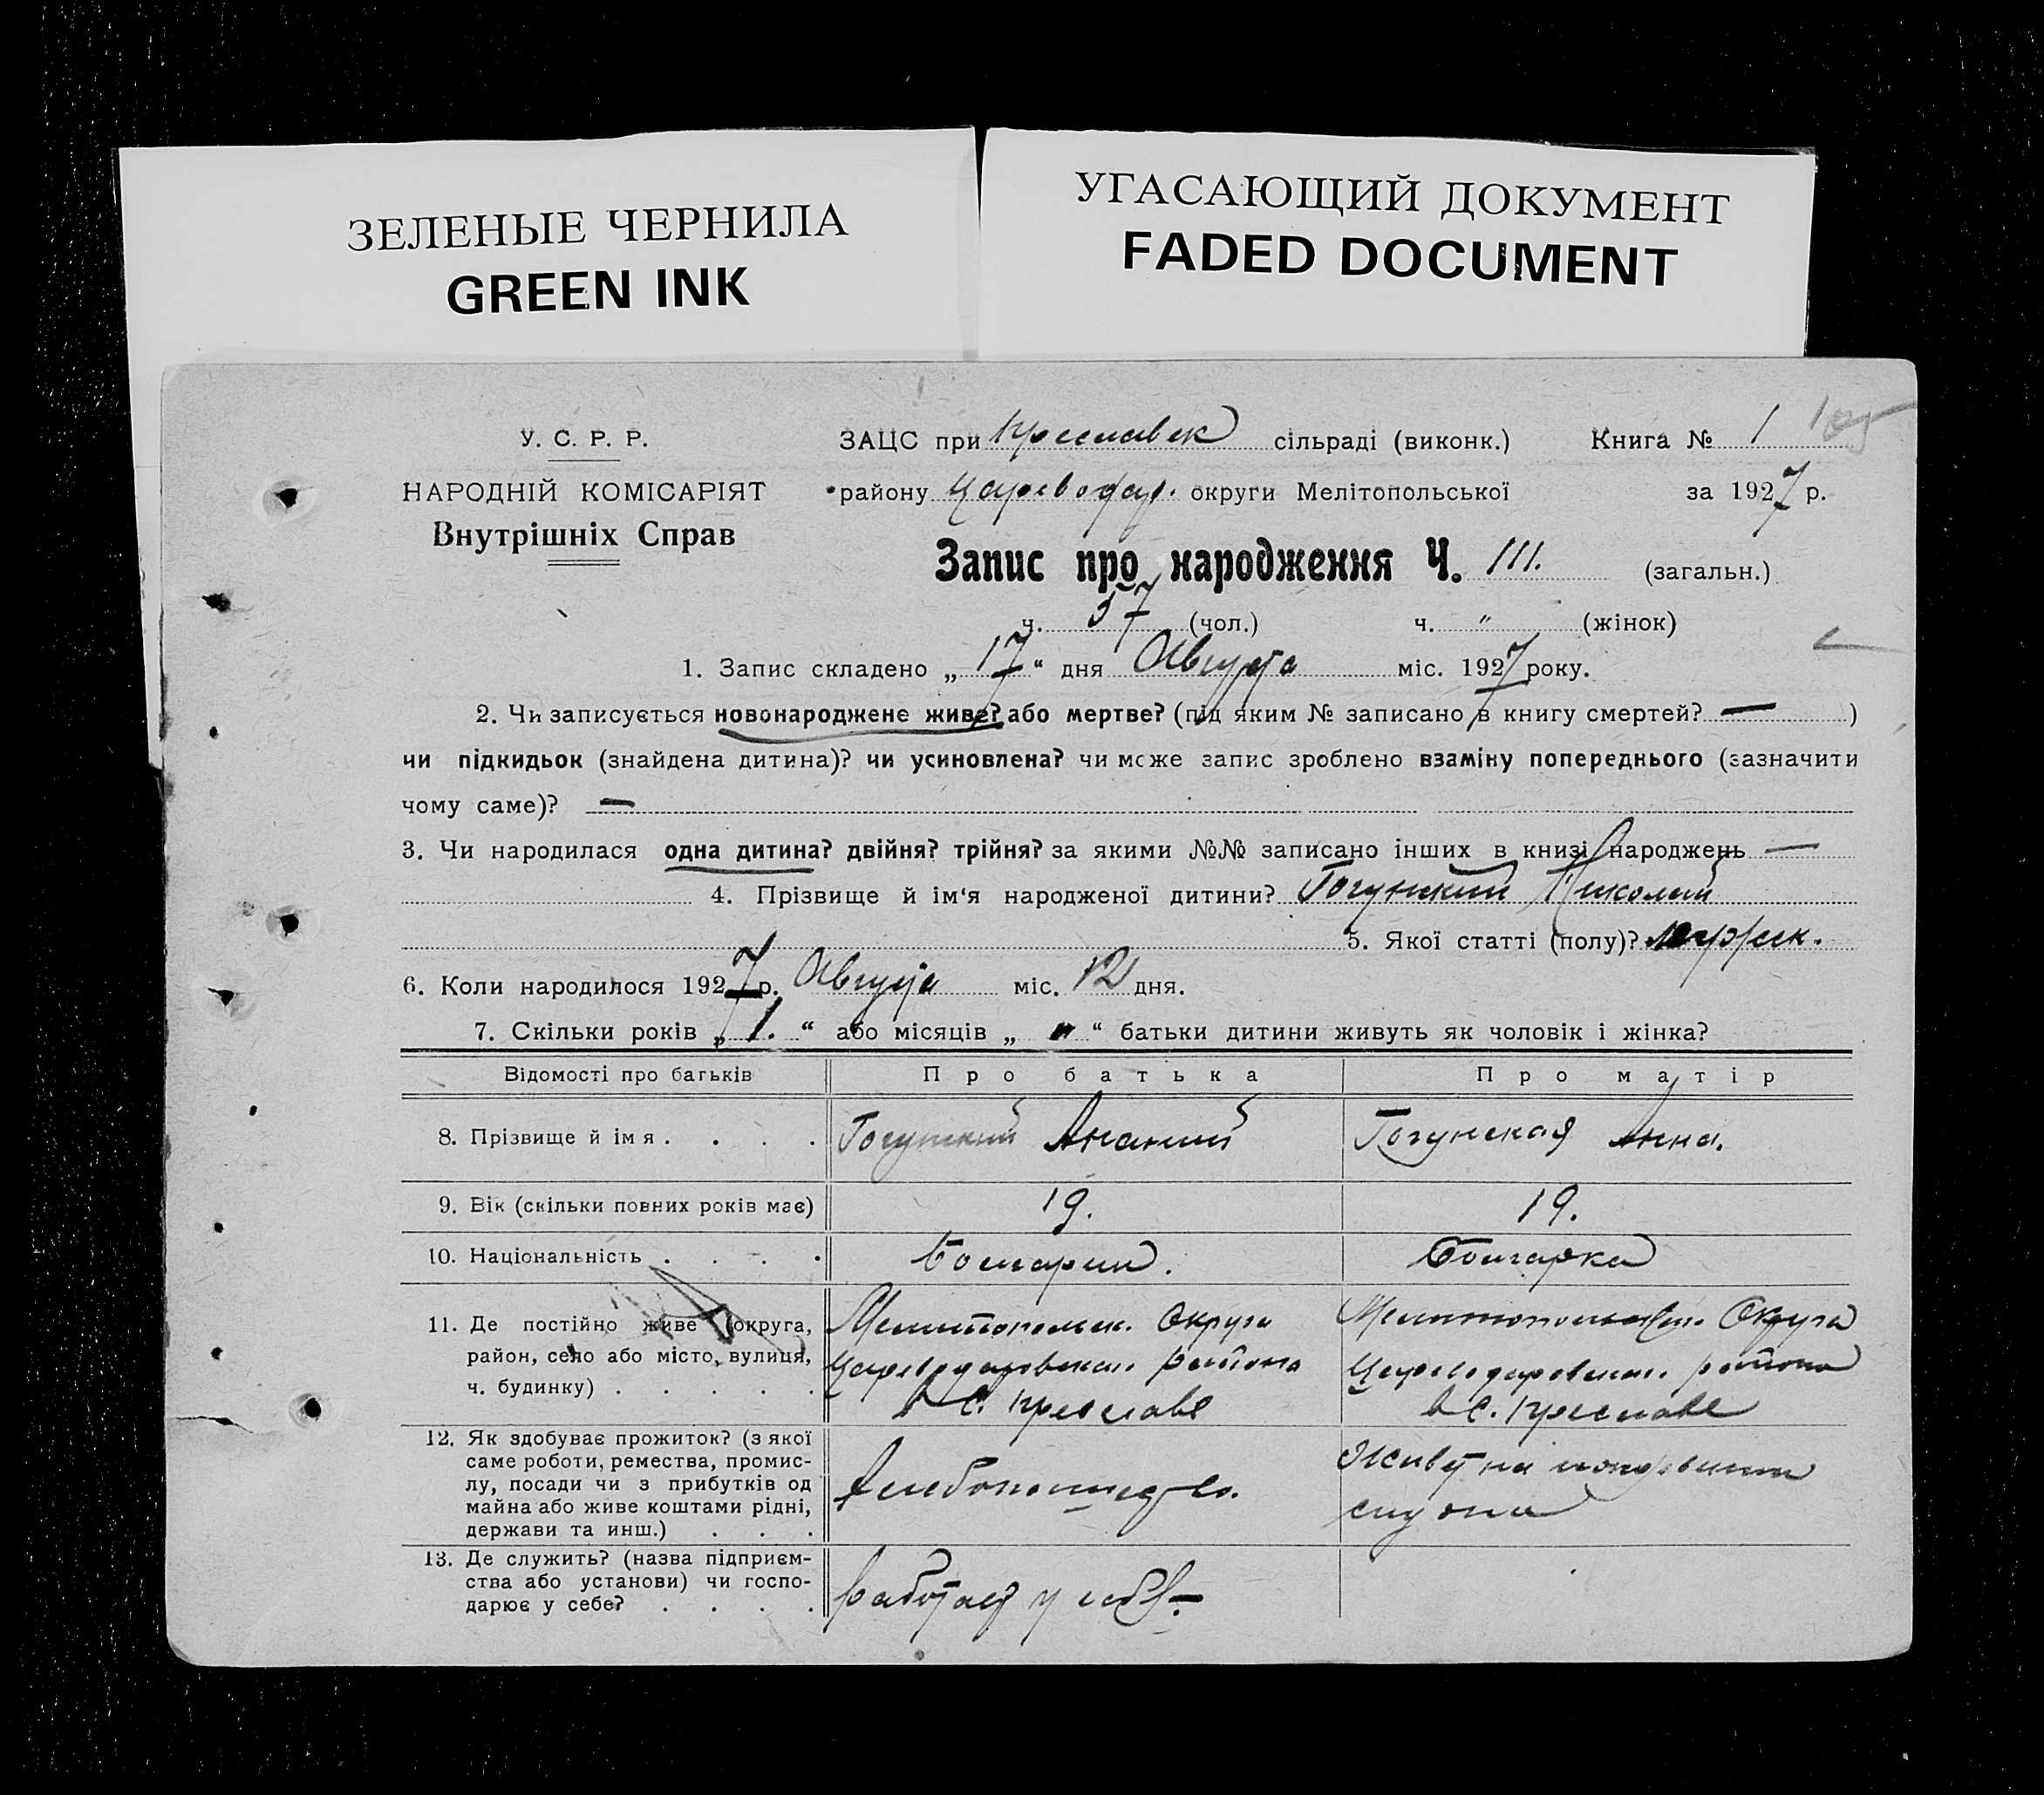 ЗЕЛЕНЫЕ ЧЕРНИЛА
GREEN INK
УГАСАЮЩИЙ ДОКУМЕНТ
FADED DOCUMENT
У. С. Р. Р.
НАРОДНІЙ КОМІСАРІЯТ
Внутрішніх Справ
ЗАЦС при Преславск сільраді (виконк.) Книга № 1
району Цареводар. округи Мелітопольської за 1927 р.
Запис про народження Ч. 111. (загальн.)
ч. 57 (чол.) ч. " (жінок)
1. Запис складено „ 17 “ дня Августа міс. 1927 року.
2. Чи записується новонароджене живе? або мертве? (під яким № записано в книгу смертей? — )
чи підкидьок (знайдена дитина)? чи усиновлена? чи може запис зроблено взаміну попереднього (зазначити
чому саме)? —
3. Чи народилася одна дитина? двійня? трійня? за якими №№ записано інших в книзі народжень —
4. Прізвище й ім‘я народженої дитини? Гогунский Николай
5. Якої статті (полу)? мужск.
6. Коли народилося 1927 р. Августа міс. 12 дня.
7. Скільки років „ 1. “ або місяців „ " “ батьки дитини живуть як чоловік і жінка?
Відомості про батьків Про батька Про матір
8. Прізвище й імя . . . . Гогунский Ананий Гогунская Анна.
9. Вік (скільки повних років має) 19. 19.
10. Національність . . . . Болгарин. Болгарка
11. Де постійно живе (округа, Мелитопольск. Округа Мелитопольск. Округа
район, село або місто, вулиця, Цареводаровская. района Цареводаровская. района
ч. будинку) . . . . . в С. Преславе в С. Преславе
12. Як здобуває прожиток? (з якої
саме роботи, ремества, промис-
лу, посади чи з прибутків од
майна або живе коштами рідні,
держави та инш.) . . .
Хлебопашество.
Живет на иждивении
13. Де служить? (назва підприєм-
ства або установи) чи госпо-
дарює у себе? . . . .
Работает у себя. —